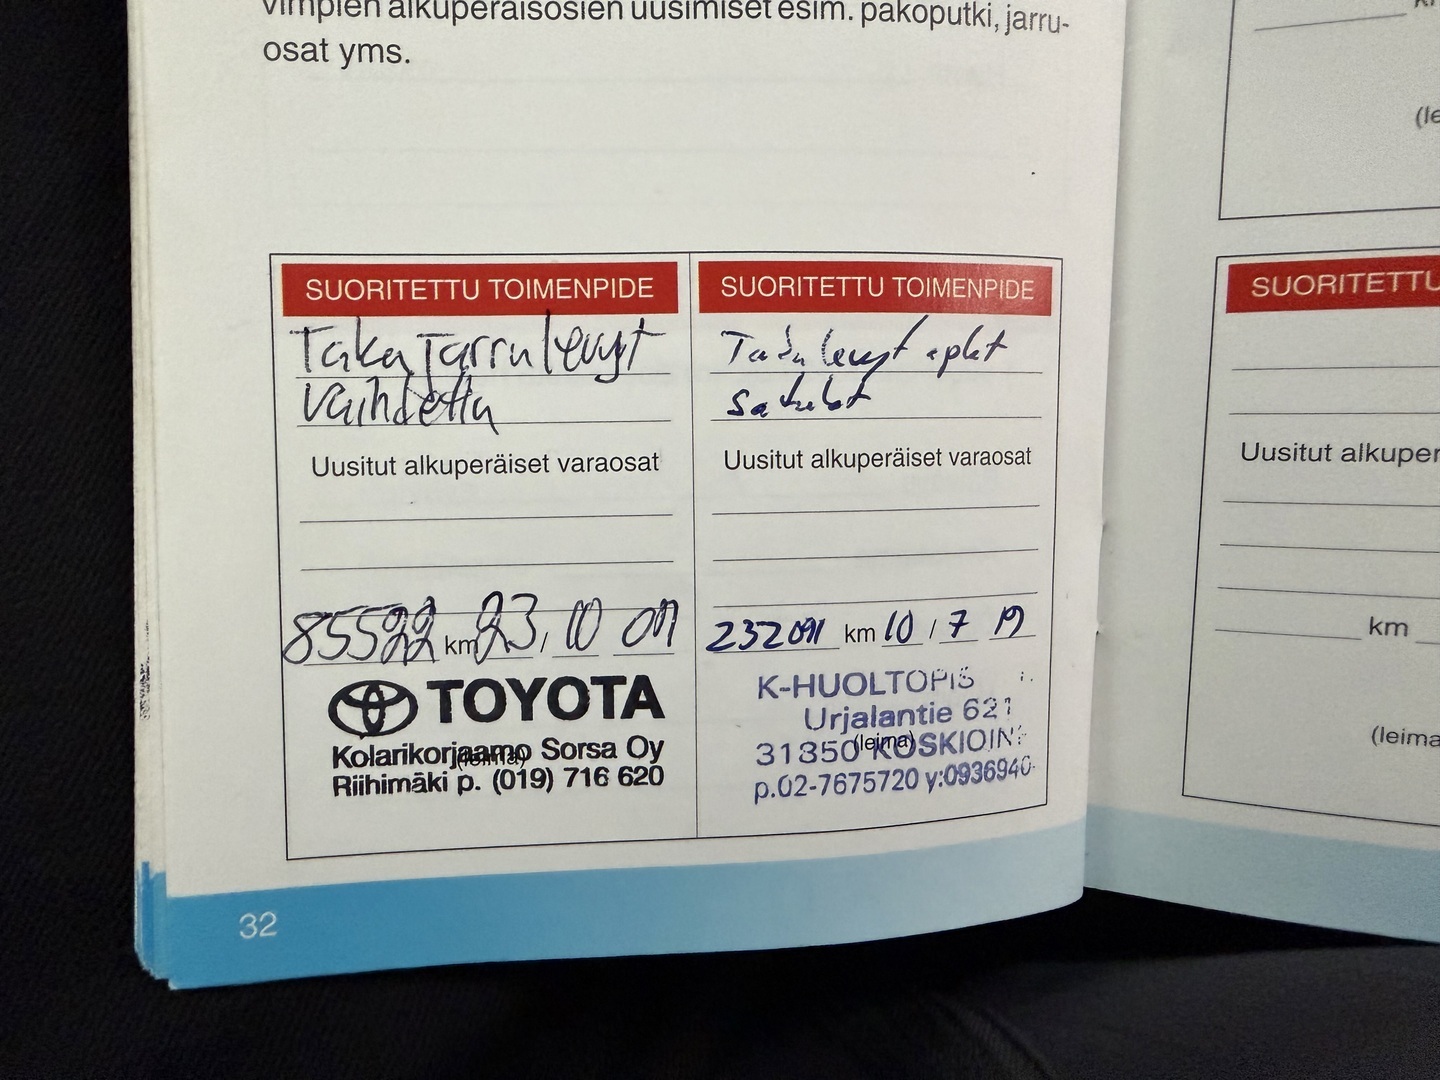 vimpien alkuperäisosien uusimiset esim. pakoputki, jarru-
osat yms.
SUORITETTU TOIMENPIDE
Taka Jarru levyt
Vaihdettu
Uusitut alkuperäiset varaosat
85522 km 23 / 10 09
TOYOTA
Kolarikorjaamo Sorsa Oy
(leima)
Riihimäki p. (019) 716 620
SUORITETTU TOIMENPIDE
levyt + plat
satulat
Uusitut alkuperäiset varaosat
232091 km 10 / 7 19
K-HUOLTOPIS
Urjalantie 621
31350 KOSKIOIN
(leima)
p.02-7675720 y:0936940-
32
(le
SUORITETTU
Uusitut alkuper
km
(leima